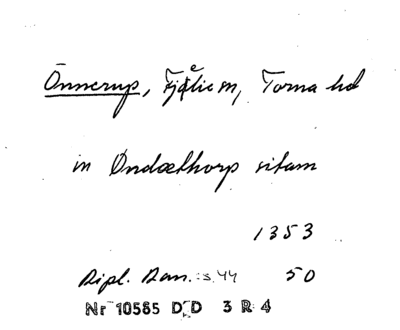 Önnerup, Fjelie sn, Torna hd
in Øndæthorp sitam
1353
Dipl. Dan. s. 44 50
Nr 10585 DD 3 R 4